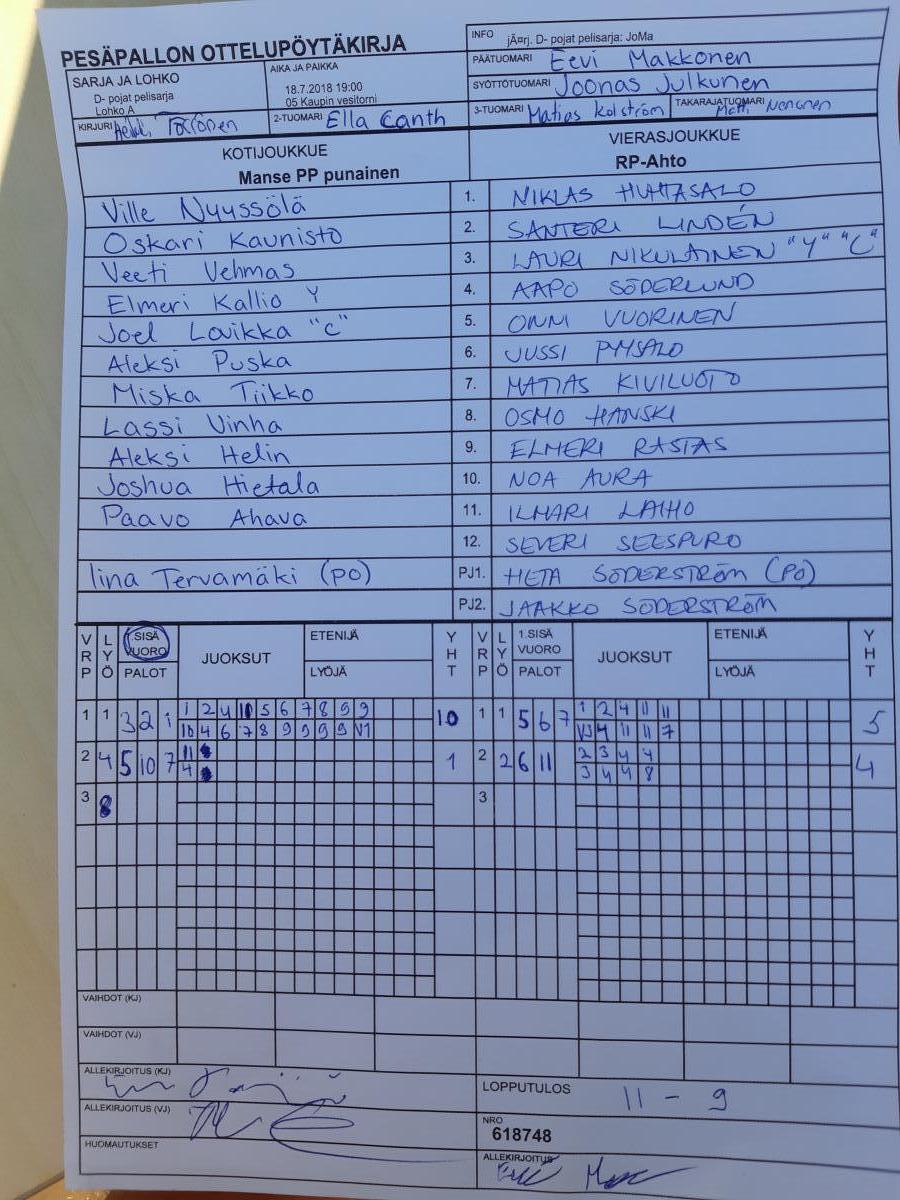 PESÄPALLON OTTELUPÖYTÄKIRJA
INFO jÄ¤rj. D- pojat pelisarja: JoMa
PÄÄTUOMARI Eevi Makkonen
SARJA JA LOHKO
D- pojat pelisarja
Lohko A
AIKA JA PAIKKA
18.7.2018 19:00
05 Kaupin vesitorni
SYÖTTÖTUOMARI Joonas Julkunen
KIRJURI
2-TUOMARI Ella Canth
3-TUOMARI Matias Kolström
TAKARAJATUOMARI Nenonen
KOTIJOUKKUE
Manse PP punainen
VIERASJOUKKUE
RP-Ahto
Ville Nyyssölä 1. NIKLAS HUHTASALO
Oskari Kaunisto 2. SANTERI LINDÉN
Veeti Vehmas 3. LAURI NIKULAINEN "Y" "C"
Elmeri Kallio Y 4. AAPO SÖDERLUND
Joel Laikka "C" 5. ONNI VUORINEN
Aleksi Puska 6. JUSSI PYYSALO
Miska Tiikko 7. MATIAS KIVILUOTO
Lassi Vinha 8. OSMO HANSKI
Aleksi Helin 9. ELMERI RASTAS
Joshua Hietala 10. NOA AURA
Paavo Ahava 11. ILMARI LAIHO
12. SEVERI SEESPURO
Iina Tervamäki (PO) PJ1. HETA SÖDERSTRÖM (PO)
PJ2. JAAKKO SÖDERSTRÖM
VRP LYÖ SISÄ VUORO PALOT JUOKSUT ETENIJÄ LYÖJÄ YHT VRP LYÖ 1.SISÄ VUORO PALOT JUOKSUT ETENIJÄ LYÖJÄ YHT
1 1 3 2 1 1 2 4 10 5 6 7 8 9 9 10 1 1 5 6 7 1 2 4 11 11 5
10 4 6 7 8 9 9 9 9 V1 V3 4 11 11 7
2 4 5 10 7 11 1 2 2 6 11 2 3 4 4 4
4 3 4 4 8
3 8 3
VAIHDOT (KJ)
VAIHDOT (VJ)
ALLEKIRJOITUS (KJ)
LOPPUTULOS 11 - 9
ALLEKIRJOITUS (VJ)
NRO
618748
HUOMAUTUKSET
ALLEKIRJOITUS